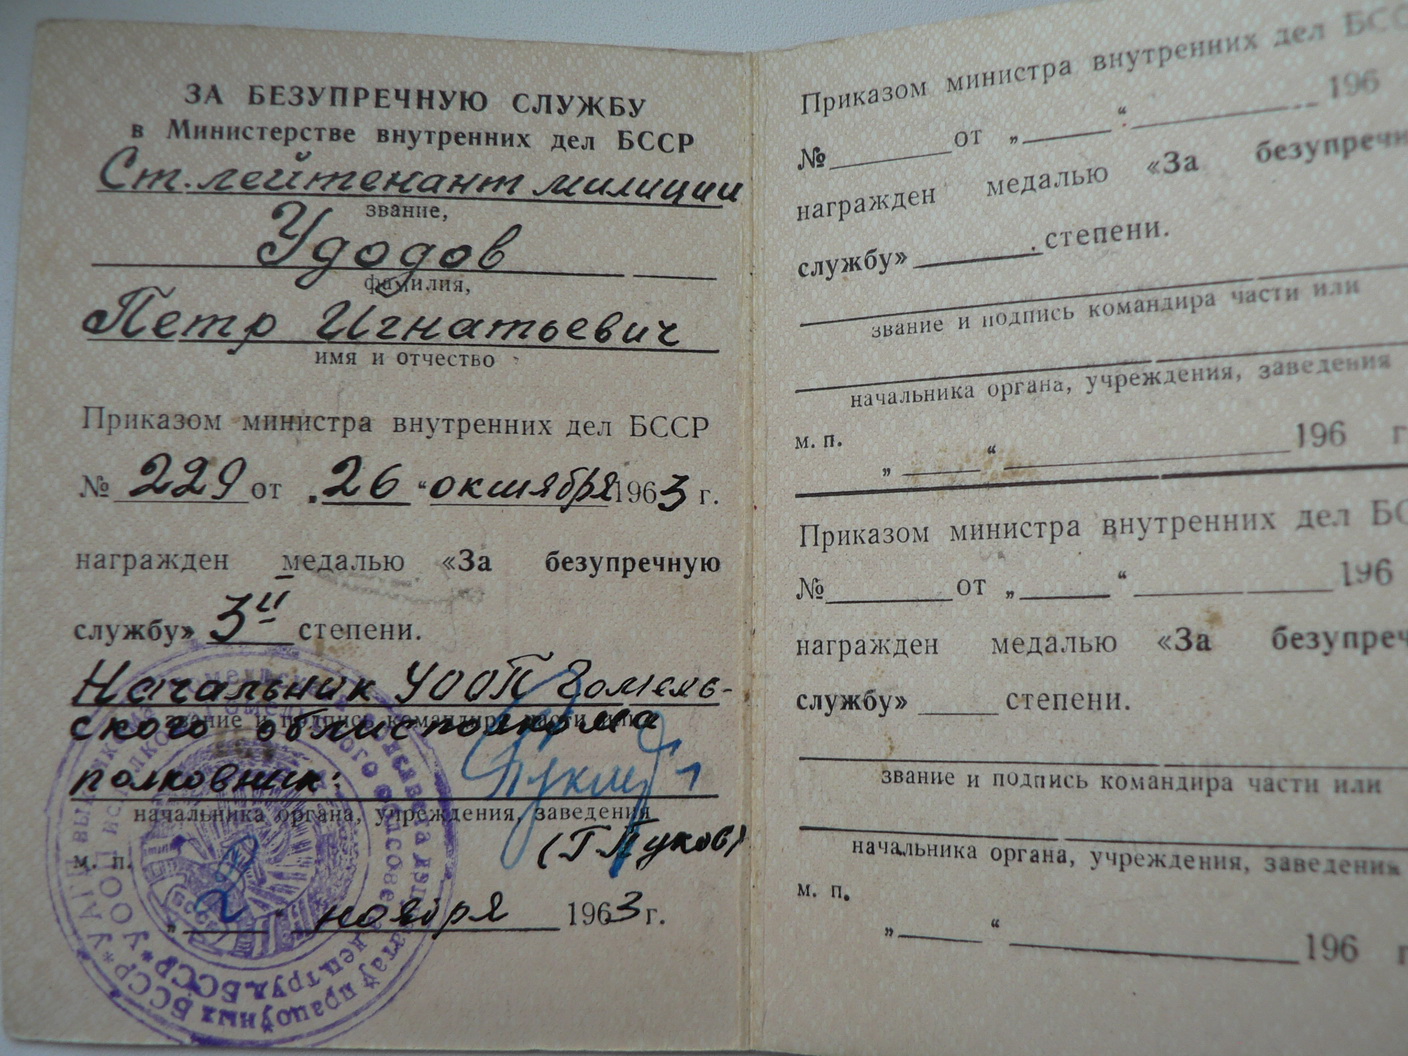 ЗА БЕЗУПРЕЧНУЮ СЛУЖБУ
в Министерстве внутренних дел БССР
Ст. лейтенант милиции
звание,
Удодов
фамилия,
Петр Игнатьевич
имя и отчество
Приказом министра внутренних дел БССР
№ 229 от „26“ октября 1963 г.
награжден медалью «За безупречную
службу» 3й степени.
Начальник УООП Гомель-
звание и подпись командира части или
ского облисполкома
полковник:
начальника органа, учреждения, заведения
(Г Пуков)
м. п.
„2“ ноября 1963 г.
Приказом министра внутренних дел БСС
№ от „ “ 196
награжден медалью «За безупречн
службу» степени.
звание и подпись командира части или
начальника органа, учреждения, заведения
м. п.
„ “ 196 г
Приказом министра внутренних дел БС
№ от „ “ 196
награжден медалью «За безупреч
службу» степени.
звание и подпись командира части или
начальника органа, учреждения, заведения
м. п.
„ “ 196 г